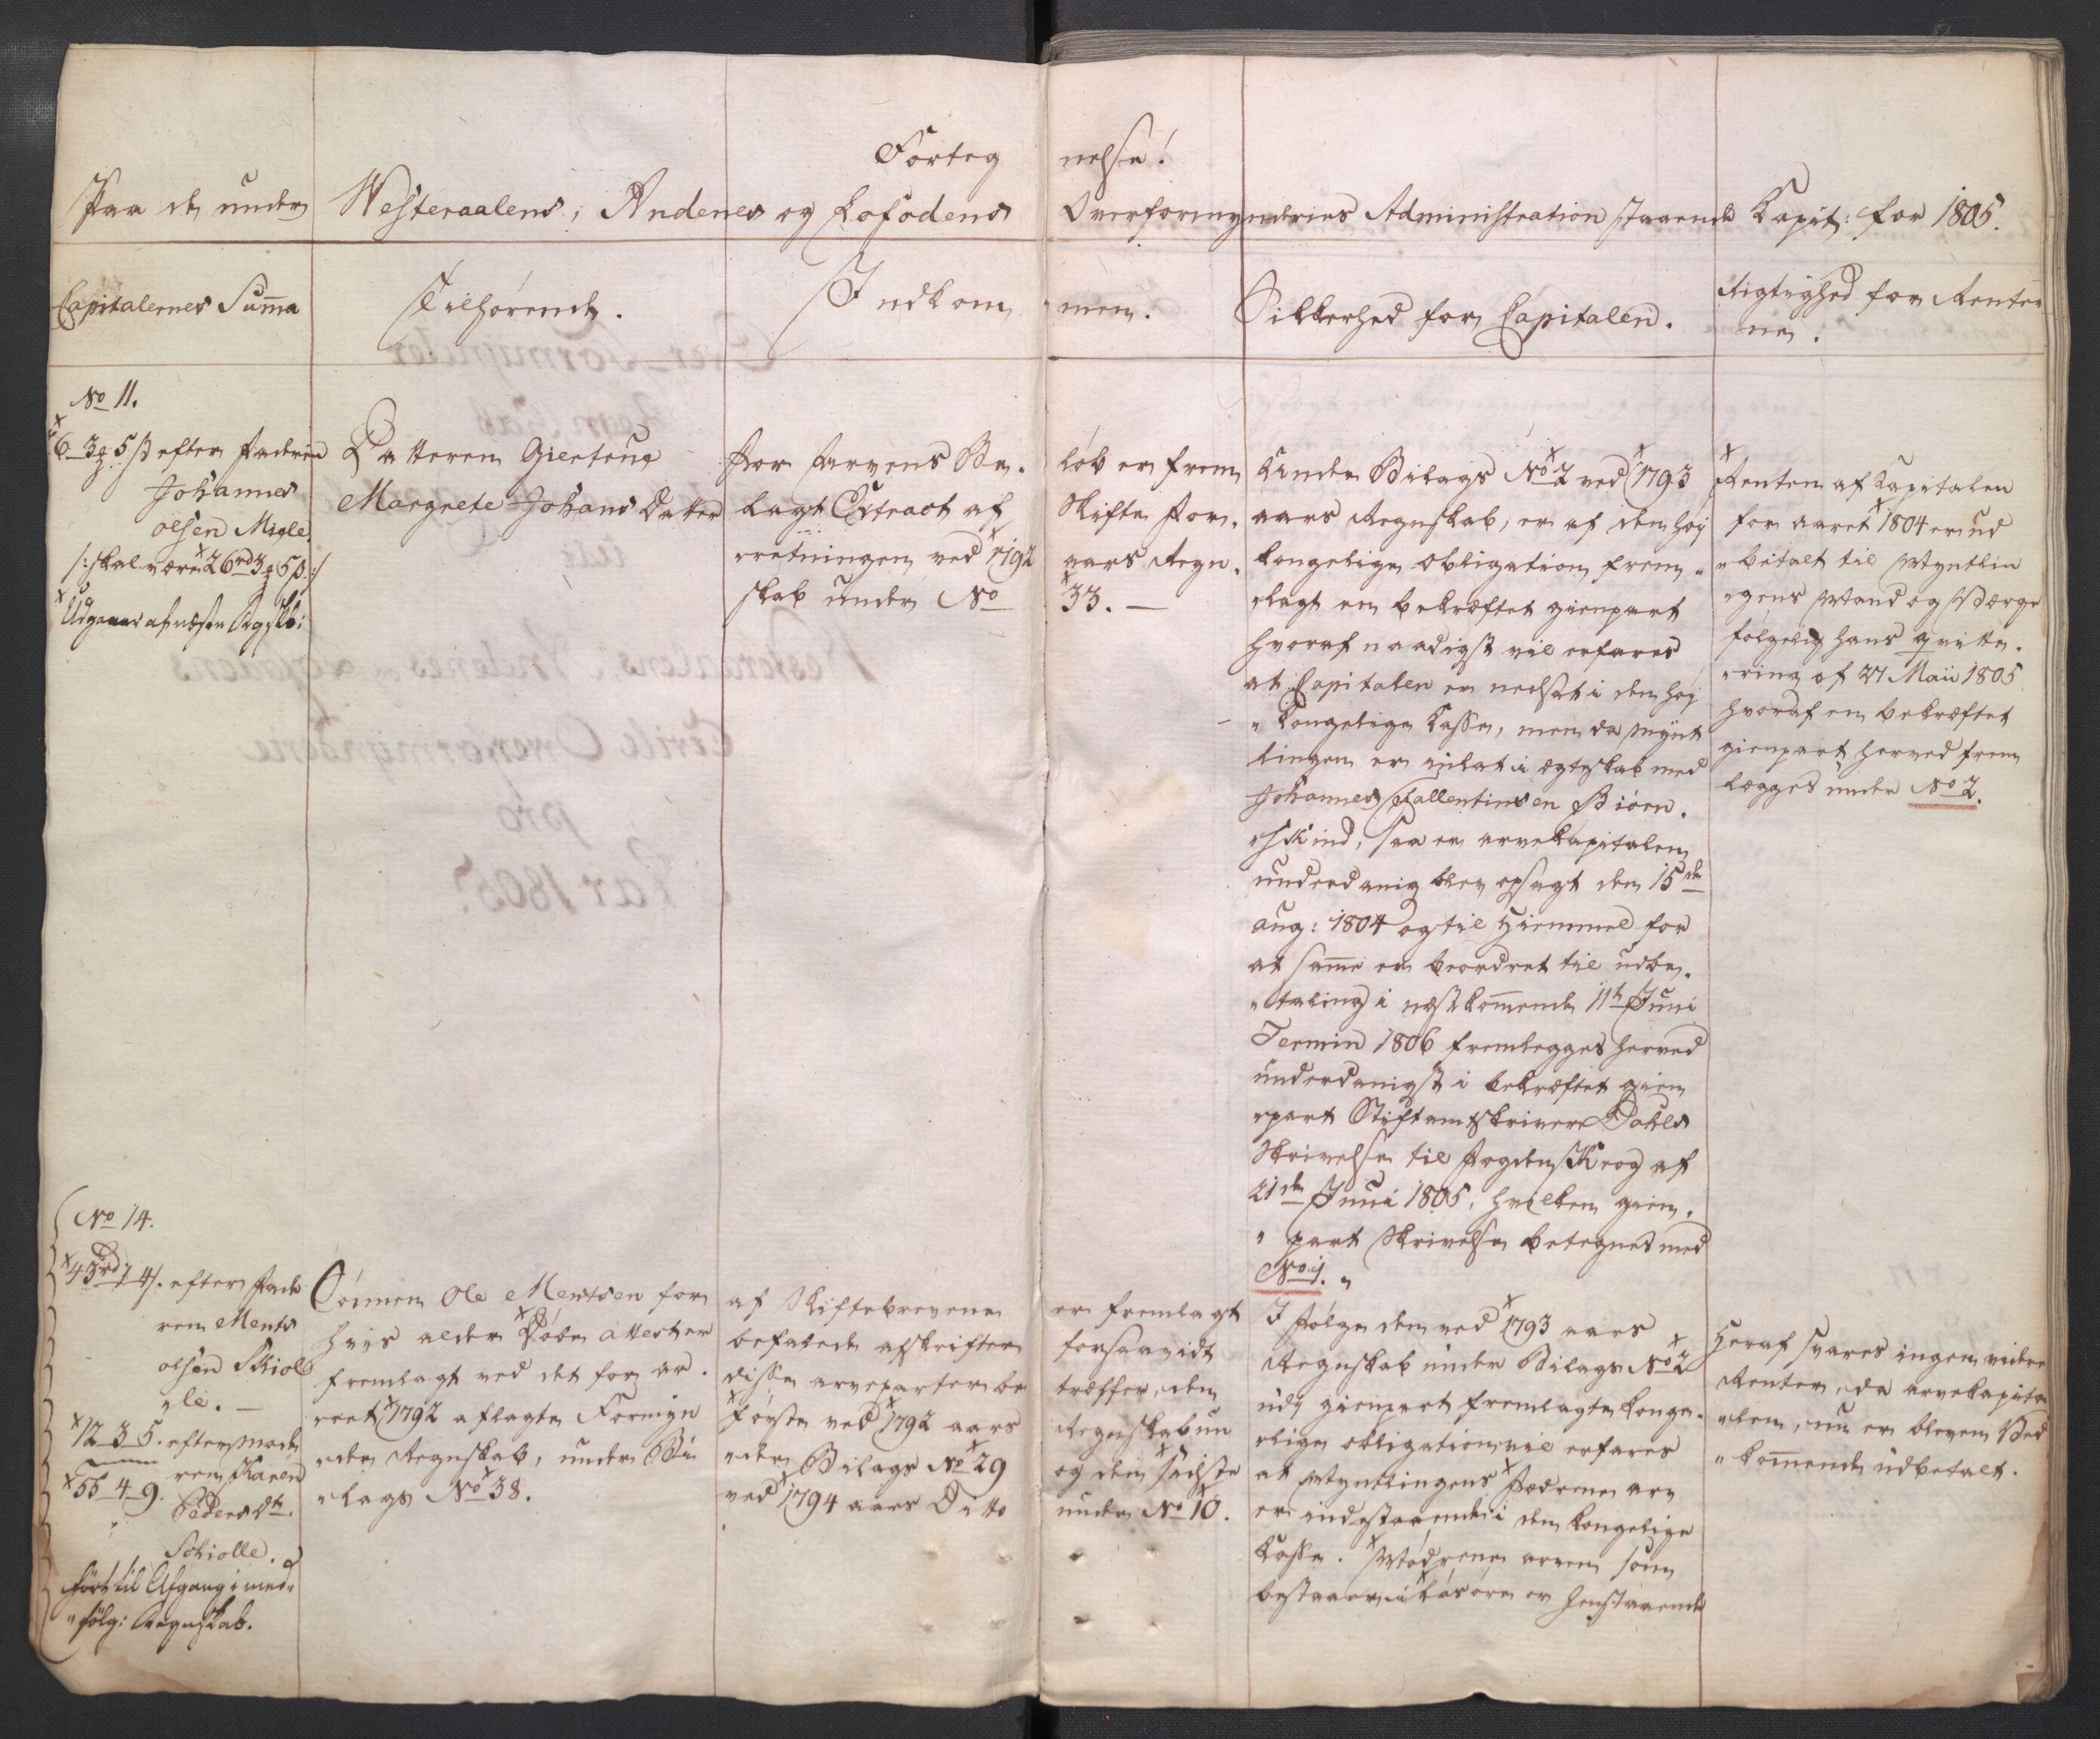 Forteg nelse!
Paa de under Westeraalens, Andenes og Lofodens Overformynderies Administration staaende Kapit: for 1805.
Capitalernes Summa
Tilhørende.
Indkom men.
Sikkerhed for Capitalen.
Rigtighed for Renter
ne.
No 11.
6 3 5 ß efter Faderen
Johannes
olsen Migle
/: skal være 26 rd 3 5 ß :/
Udgaaer af næste Rgsk:
Datteren Giertrue
Margrete Johans Datter
For Arvens Be-
lagt Extract af
rretningen ved 1792
skab under No
løb er frem
Skifte For-
aars Regn-
33. —
Under Bilags No 2 ved 1793
aars Regnskab, er af den høj
kongelige obligation frem-
lagt en bekræftet gienpart
hvoraf naadigst vil erfares
at Capitalen er nedsat i den høj
kongelige Kasse, men da Mynt
lingen er indlat i ægteskab med
Johannes Fallentinsen Biørn-
schKind, saa er arvekapitalen
underdanig blev opsagt den 15de
aug: 1804 og til Hiemmel for
at samme er beordret til udbe-
taling i næstkommende 11te Juni
Termin 1806 fremlegges herved
underdanigst i bekræftet gien
part Stiftamtskriver Dahls
Skrivelse til Fogden Krog af
21de Juni 1805, hvilken gien-
part Skrivelse betegnes med
No 1.
Renten af Kapitalen
for aaret 1804 er ud
betalt til Myntlin
gens Mand og Værge
følgelig hans qvitte-
ring af 27 Maii 1805
hvoraf en bekræftet
gienpart herved frem
lægges under No 2.
No 14.
43 rd 1 4 ß. efter Fade
ren Ments
olsen Skiol
le. —
12 3 5. efter mode
ren Karen
Peders Dtr.
Schiolle.
55 4 9.
ført til Afgang i med-
følg: Regnskab.
Sønnen Ole Mentsen for
hvis alder Døbe attest er
fremlagt ved det for aa-
ret 1792 aflagte Formyn
der Regnskab, under Bi
lags No 38.
af Skiftebrevene
befalede afskrifter
disse arveparter be
første ved 1792 aars
der Bilags No 29
ved 1794 aars Ditto
er fremlagt
forsaavidt
træffer, den
Regnskab un
og den sidste
under No 10.
I Følge den ved 1793 aars
Regnskab under Bilags No 2
udj gienpart fremlagte konge-
lige obligation vil erfares
at Myntlingens Fædrene arv
er indestaaende i den kongelige
Kasse. Mødrene arven som
bestaaer i Løsøre er henstaaende
Heraf svares ingen videre
Renter, da arvekapita
len, nu er bleven Ved
kommende udbetalt.